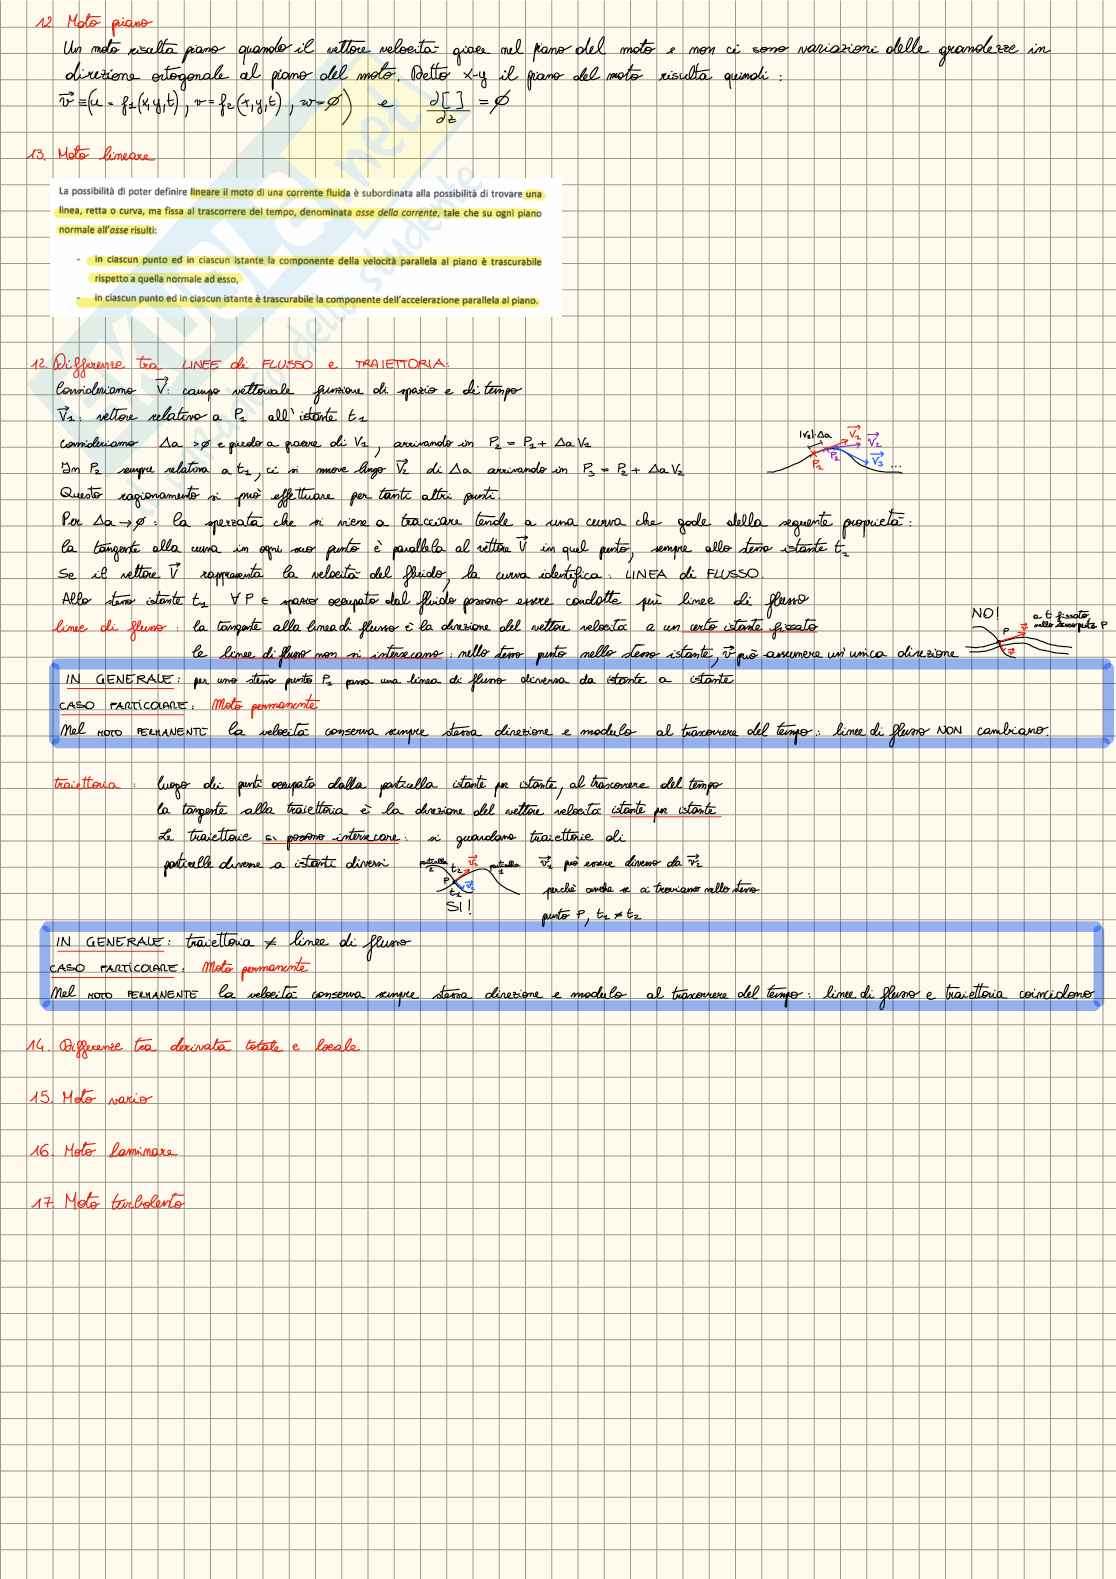 12 Moto piano
Un moto risulta piano quando il vettore velocità giace nel piano del moto e non ci sono variazioni delle grandezze in
direzione ortogonale al piano del moto. Detto x-y il piano del moto risulta quindi :
v⃗ ≡ (u = f1(x,y,t) , v = f2(x,y,t) , w = ∅) e ∂[ ]/∂z = ∅
13. Moto lineare
La possibilità di poter definire lineare il moto di una corrente fluida è subordinata alla possibilità di trovare una
linea, retta o curva, ma fissa al trascorrere del tempo, denominata asse della corrente, tale che su ogni piano
normale all'asse risulti:
- in ciascun punto ed in ciascun istante la componente della velocità parallela al piano è trascurabile
rispetto a quella normale ad esso,
- in ciascun punto ed in ciascun istante è trascurabile la componente dell'accelerazione parallela al piano.
12. Differenze tra LINEE di FLUSSO e TRAIETTORIA:
Consideriamo V⃗: campo vettoriale funzione di spazio e di tempo
V⃗1: vettore relativo a P1 all'istante t1
consideriamo Δa >∅ e piccolo a piacere di V1, arrivando in P2 = P1 + Δa V1
In P2 sempre relativa a t1, ci si muove lungo V⃗2 di Δa arrivando in P3 = P2 + Δa V2
|V1|·Δa V⃗1 V⃗2 V⃗3 P1 P2 ...
Questo ragionamento si può effettuare per tanti altri punti.
Per Δa → ∅ : la spezzata che si viene a tracciare tende a una curva che gode della seguente proprietà:
la tangente alla curva in ogni suo punto è parallela al vettore V⃗ in quel punto, sempre allo stesso istante t1
Se il vettore V⃗ rappresenta la velocità del fluido, la curva identifica: LINEA di FLUSSO.
Allo stesso istante t1 ∀ P ∈ spazio occupato dal fluido possono essere condotte più linee di flusso
linee di flusso : la tangente alla linea di flusso è la direzione del vettore velocità a un certo istante fissato
le linee di flusso non si intersecano : nello stesso punto nello stesso istante, v⃗ può assumere un'unica direzione
NO! P v⃗ v⃗ a t fissato
nello stesso punto P
IN GENERALE: per uno stesso punto P1 passa una linea di flusso diversa da istante a istante
CASO PARTICOLARE: Moto permanente
Nel MOTO PERMANENTE la velocità conserva sempre stessa direzione e modulo al trascorrere del tempo: linee di flusso NON cambiano.
traiettoria : luogo dei punti occupato dalla particella istante per istante, al trascorrere del tempo
la tangente alla traiettoria è la direzione del vettore velocità istante per istante
Le traiettorie si possono intersecare: si guardano traiettorie di
particelle diverse a istanti diversi
particella 2 t2 v⃗2 particella 1 P v⃗1 t1
SI!
v⃗1 può essere diverso da v⃗2
perchè anche se ci troviamo nello stesso
punto P, t1 ≠ t2
IN GENERALE: traiettoria ≠ linee di flusso
CASO PARTICOLARE: Moto permanente
Nel MOTO PERMANENTE la velocità conserva sempre stessa direzione e modulo al trascorrere del tempo: linee di flusso e traiettoria coincidono
14. Differenze tra derivata totale e locale
15. Moto vario
16. Moto laminare
17. Moto turbolento